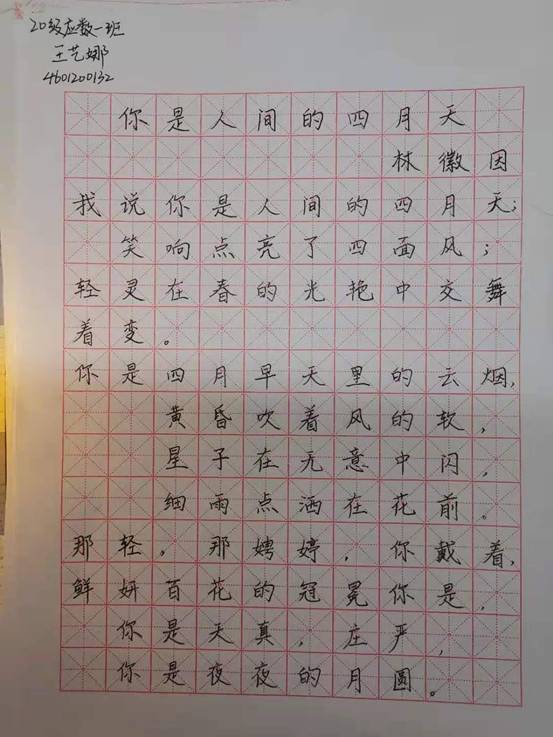 20级应数一班
王艺娜
4601200132
你是人间的四月天
林徽因
我说你是人间的四月天；
笑响点亮了四面风；
轻灵在春的光艳中交舞
着变。
你是四月早天里的云烟，
黄昏吹着风的软，
星子在无意中闪，
细雨点洒在花前。
那轻，那娉婷，你戴着，
鲜妍百花的冠冕你是，
你是天真，庄严，
你是夜夜的月圆。